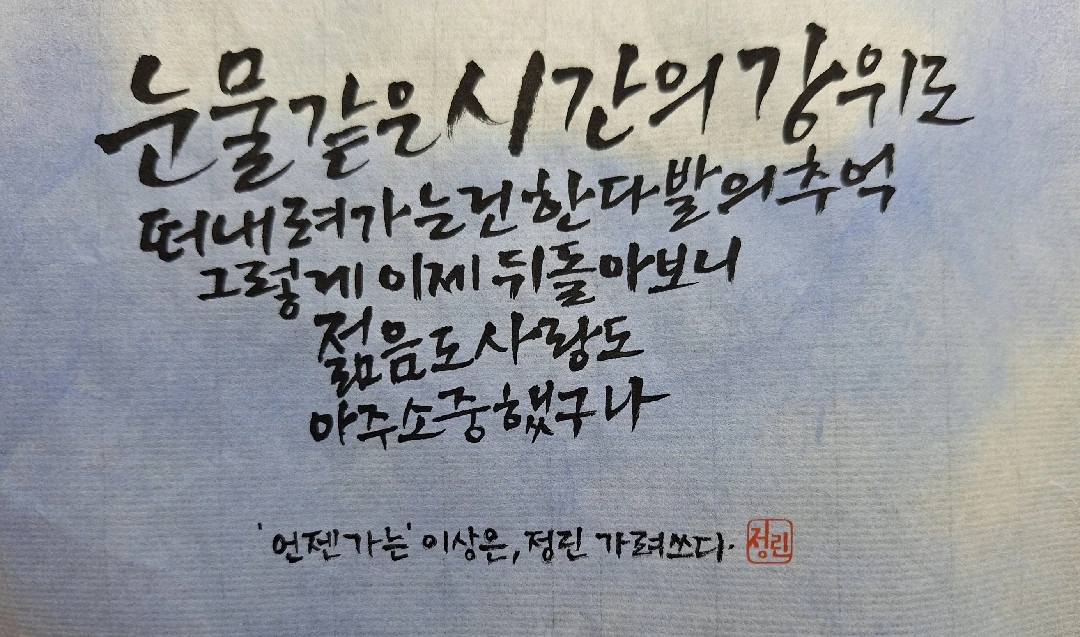 눈물같은시간의 강위로
떠내려가는건 한다발의추억
그렇게 이제 뒤돌아보니
젊음도사랑도
아주소중했구나
'언젠가는' 이상은, 정린 가려쓰다.
정린